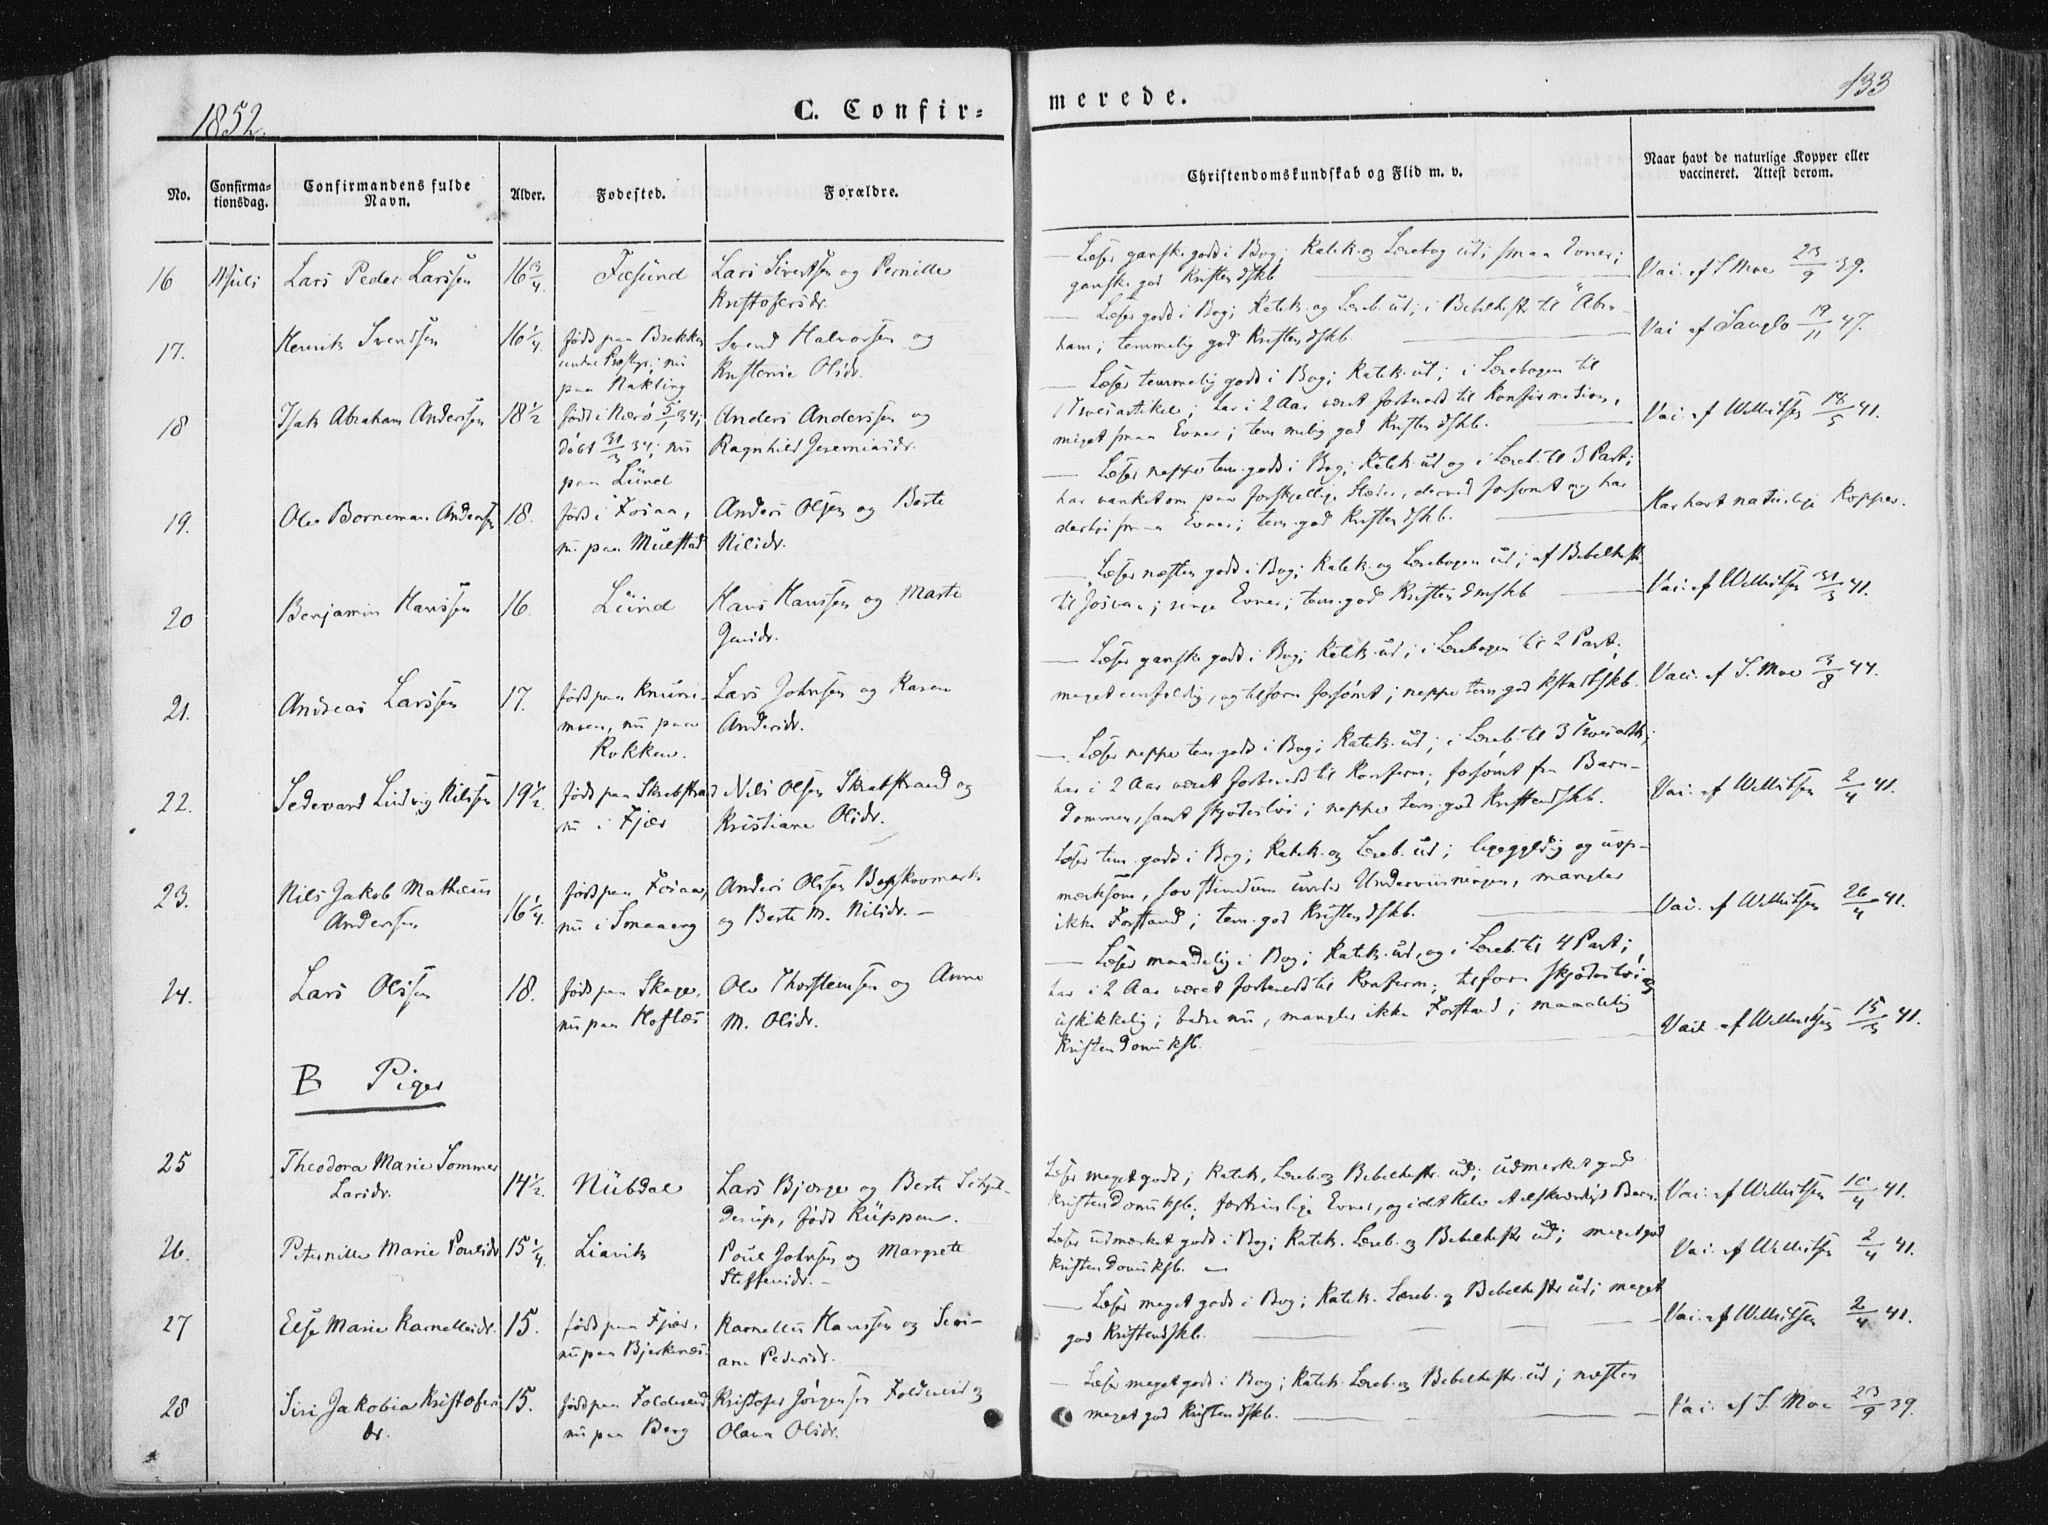 1852.
C. Confir=
merede.
133
No.
Confirma-
tionsdag.
Confirmandens fulde
Navn.
Alder.
Fødested.
Forældre.
Christendomskundskab og Flid m. v.
Naar havt de naturlige Kopper eller
vaccineret. Attest derom.
16
Juli
Lars Peder Larssen
16 3/4.
Lars Sivertsen og Pernille
Kristofersdr.
Læser ganske godt i Bog; Katek. og Lærebog ud; smaa Evner;
ganske god Kristendskb
Vai. af S. Moe 23/9 39.
17.
Henrik Svendsen
16 1/4.
født paa Brekken
nu
paa Kakling
Svend Halvorsen og
Olsdr.
Læser godt i Bog; Katek. og Læreb. ud; i Bibelhist. til Abra-
ham; temmelig god Kristendskb
Vai af Sanglo 19/11 47.
18
Isak Abraham Anderssen
18 1/2
født i Nærø 5/1 34;
døbt 31/3 34; nu
paa Lund
Anders Anderssen og
Ragnhild Jeremiasdr.
Læser temmelig godt i Bog; Katek. ud; i Lærebogen til
Troesartikel; har i 2 Aar været forberedt til Konfirmation,
meget smaa Evner; temmelig god Kristendskb.
Vai. af Willertsen 18/5 41.
19.
Ole Borneman Andersen
18.
født i Fosaa,
nu paa Mulstad
Anders Olsen og Berte
Nilsdr.
Læser neppe tem. godt i Bog; Katek. ud og i Læreb. til 3 Part;
har vanket om paa forskjellige Steder, derved forsømt og har
derhos smaa Evner; tem. god Kristendskb.
Har havt naturlige Kopper.
20
Benjamin Hanssen
16.
Lund
Hans Hanssen og Marte
Jensdr.
Læser næsten godt i Bog; Katek. og Lærebogen ud; af Bibelhist.
til Josva; ringe Evner; tem. god Kristendmskb
Vai. af Willertsen 31/3 41.
21.
Andreas Larssen
17.
født paa
moen, nu paa
Rokken.
Lars Johnsen og Karen
Andersdr.
Læser ganske godt i Bog; Katek. ud; i Lærebogen til 2 Part;
meget eenfoldig, og tilforn forsømt; neppe tem. god
Vacc. af S. Moe 3/8 44.
22.
Sedevard Ludvig Nilssen
19 1/2.
født paa Skrabstrad
nu i Fjær
Nils Olsen Skrabstrand og
Kristiane Olsdr.
Læser neppe tem. godt i Bog; Katek. ud; i Læreb. til 3
har i 2 Aar været forberedt til Konfirm; forsømt fra Barn-
dommen, samt skjødesløs; neppe tem. god Kristendskb.
Vai. af Willertsen 2/4 41.
23.
Nils Jakob Matheus
Anderssen
16 1/4.
født paa Fosaa,
nu i Smaaerg
Anders Olsen
og Berte M. Nilsdr.
Læser tem. godt i Bog; Katek. og Læreb. ud; ligegyldig og uop-
mærksom, under Underviisningen, mangler
ikke Forstand; tem. god Kristendskb.
Vai. af Willertsen 26/4 41.
24.
Lars Olssen
18.
født paa Skage,
nu paa Hofles
Ole Thorstensen og Anne
M. Olsdr.
Læser maadelig i Bog; Katek. ud, og i Læreb. til 4 Part;
har i 2 Aar været forberedt til Konfirm; tilforn skjødesløs og
uskikkelig; bedre nu, mangler ikke Forstand; maadelig
Kristendomskb.
Vai. af Willertsen 15/3 41.
B Piger
25
Theodora Marie Sommer
Larsdr.
14 1/2.
Nubdal
Lars Bjerge og Berte
født Kuppen.
Læser meget godt; Katek, Læreb. og Bibelhist. ud; udmerket god
Kristendomskb; fortrinlige Evner, og i det Hele et elskværdigt Barn.
Vai. af Willertsen 10/4 41.
26.
Peternille Marie Poulsdr.
15 1/4.
Liavik
Poul Johnsen og Margrete
Steffensdr.
Læser udmerket godt i Bog; Katek. Læreb. og Bibelhist. ud; meget god
Kristendomskb.
Vai. af Willertsen 2/4 41.
27
Else Marie Karnelliusdr.
15.
født paa Fjær,
nu paa Bjerknes.
Karnelius Hanssen og Seri-
ane Pedersdr.
Læser meget godt i Bog; Katek. Læreb. og Bibelhist. ud; meget
god Kristendskb.
Vai. af Willertsen 2/4 41.
28
Siri Jakobia Kristofers
dr.
15.
født paa Foldereid
nu paa Berg
Kristofer Jørgensen Foldereid og
Olava Olsdr.
Læser meget godt i Bog; Katek. Læreb. og Bibelhist. ud; næsten
meget god Kristendskb.
Vai. af S. Moe 23/9 39.